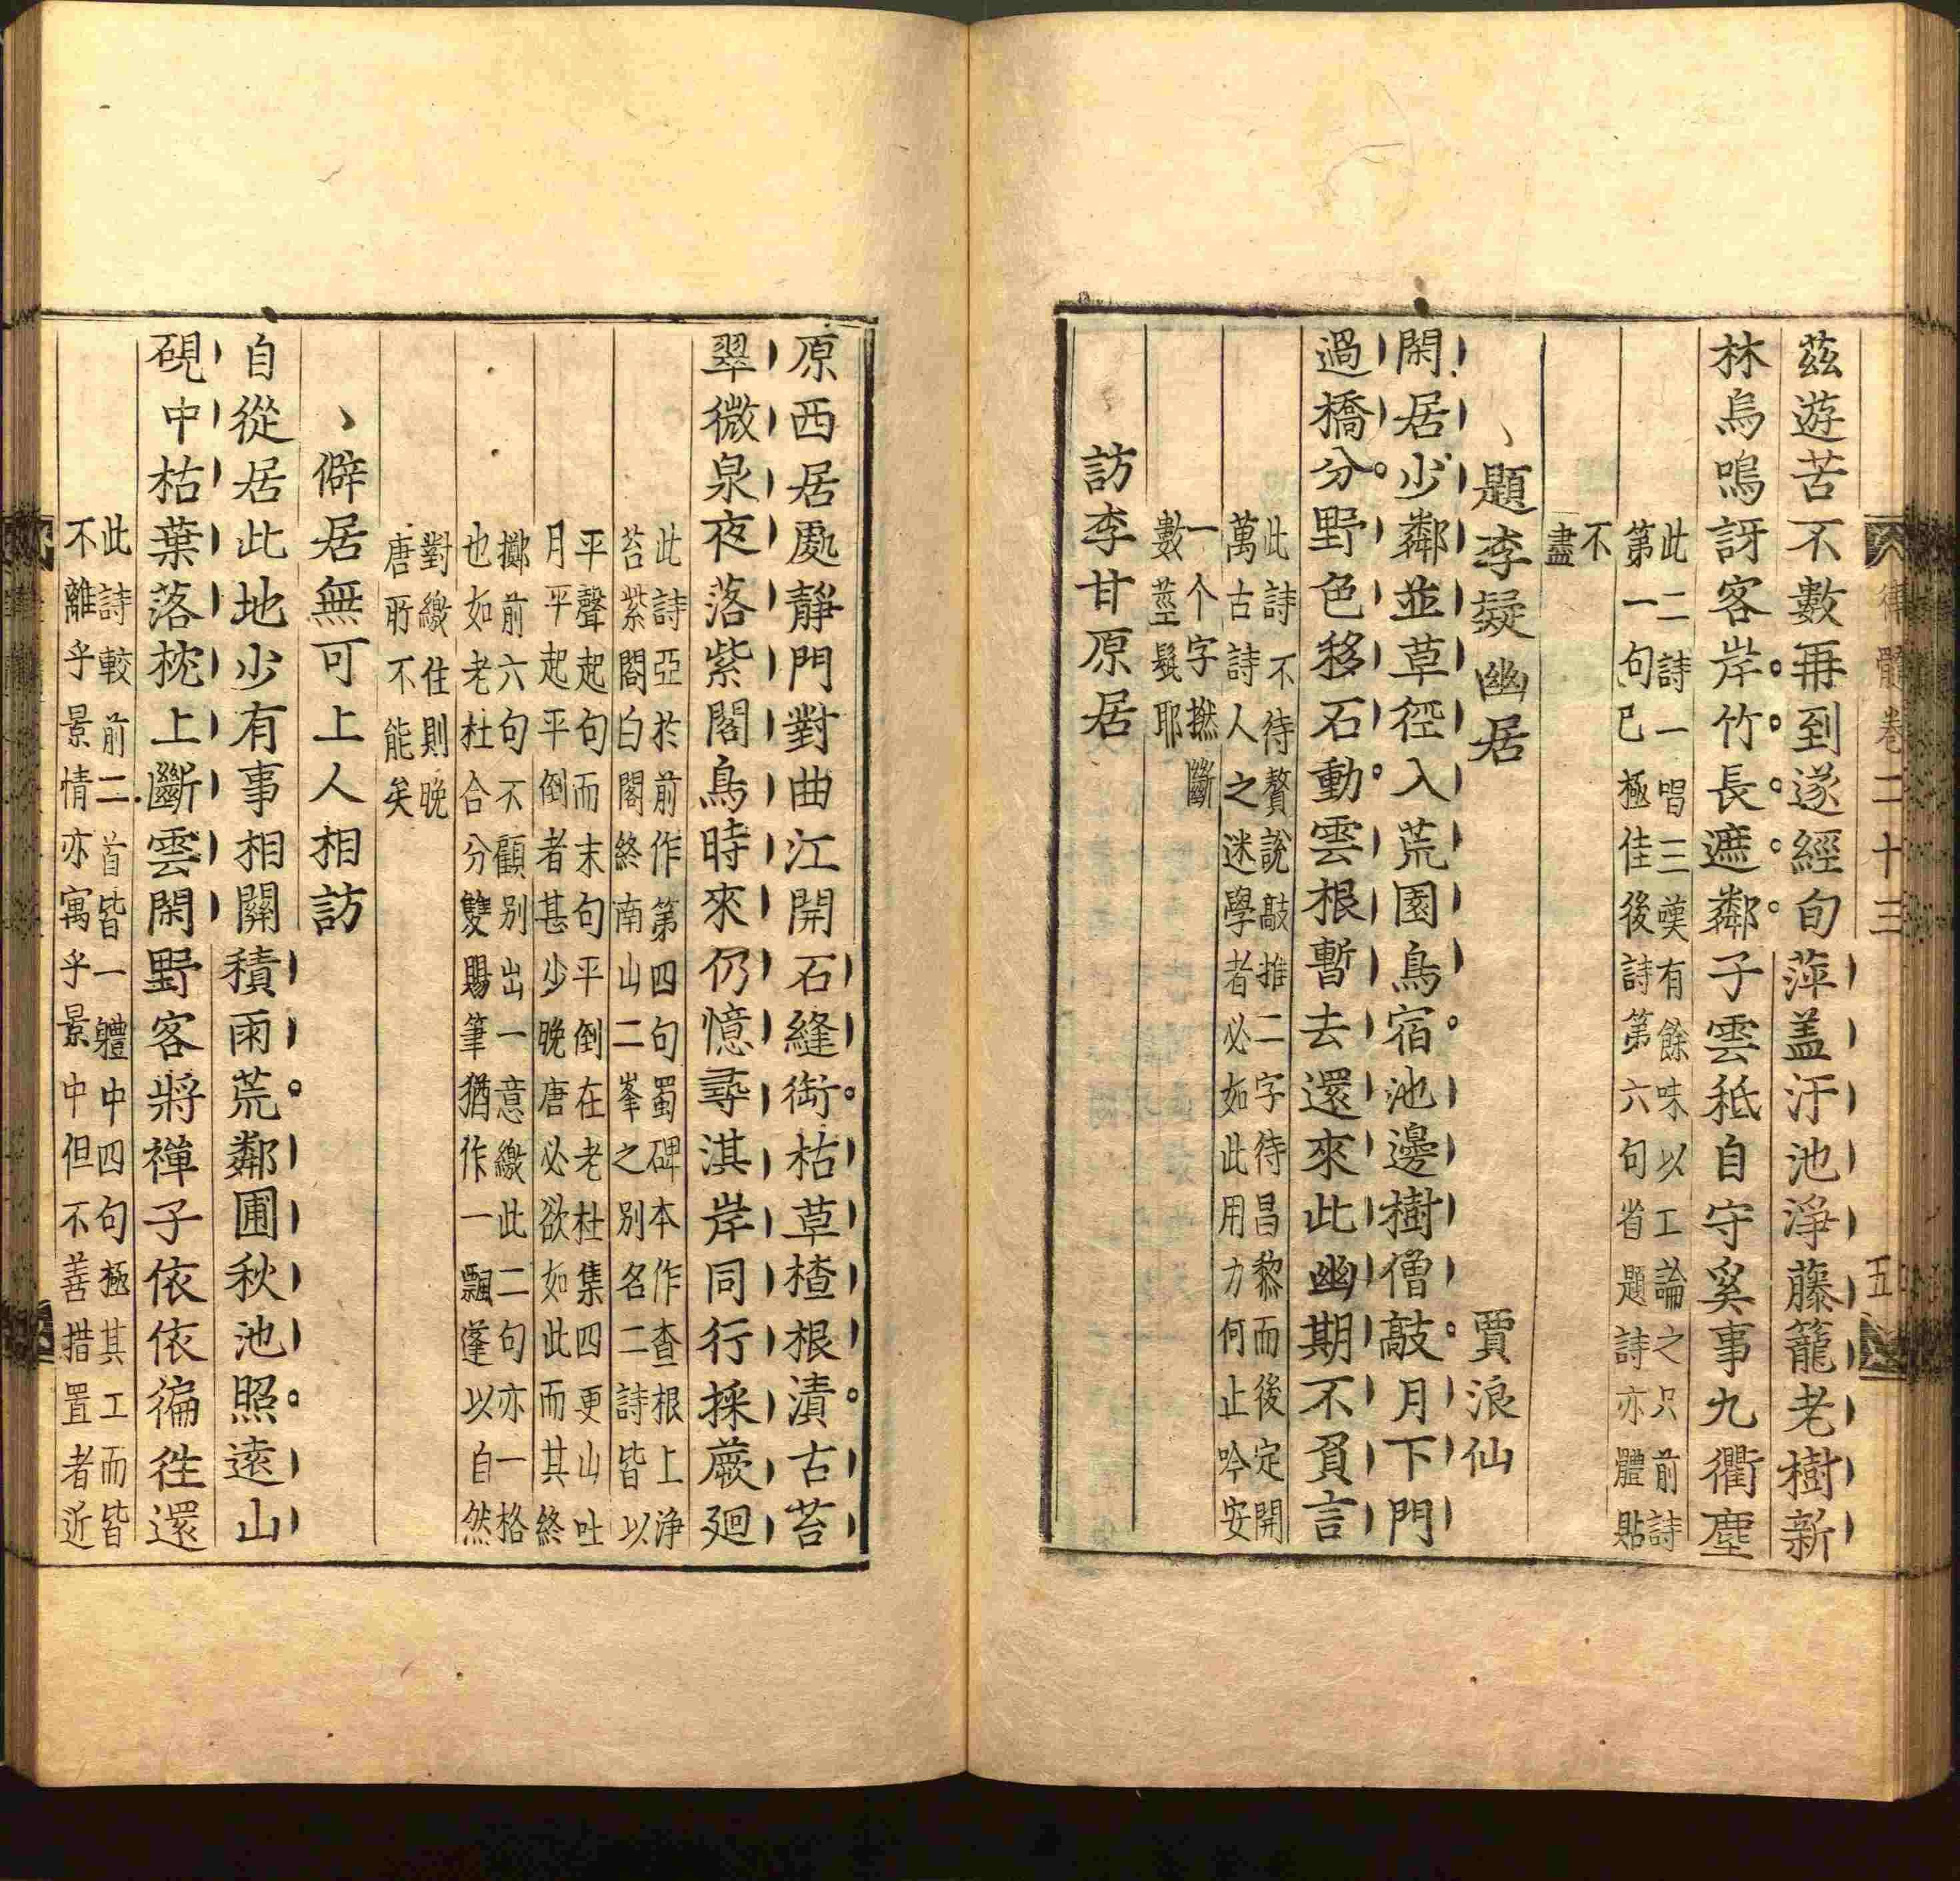 律髓卷二十三
五
茲遊苦不數再到遂經旬萍盖汙池淨藤籠老樹新
林烏鳴訝客岸竹長遮鄰子雲秪自守奚事九衢塵
此二詩一唱三嘆有餘味以工論之只前詩
第一句已極佳後詩第六句省題詩亦體貼
不
盡
題李凝幽居　賈浪仙
閑居少鄰並草徑入荒園鳥宿池邊樹僧敲月下門
過橋分野色移石動雲根暫去還來此幽期不負言
此詩不待贅說敲推二字待昌黎而後定開
萬古詩人之迷學者必如此用力何止吟安
一个字撚斷
數莖髭耶
訪李甘原居
原西居處靜門對曲江開石縫衘枯草楂根漬古苔
翠微泉夜落紫閣鳥時來仍憶尋淇岸同行採蕨廻
此詩亞於前作第四句蜀碑本作查根上淨
苔紫閣白閣終南山二峯之別名二詩皆以
平聲起句而末句平倒在老杜集四更山吐
月平起平倒者甚少晚唐必欲如此而其終
擲前六句不顧別出一意繳此二句亦一格
也如老杜合分雙賜筆猶作一飄蓬以自然
對繳住則晚
唐所不能矣
僻居無可上人相訪
自從居此地少有事相關積雨荒鄰圃秋池照遠山
硯中枯葉落枕上斷雲閑野客將禪子依依徧徃還
此詩較前二首皆一軆中四句極其工而皆
不離乎景情亦寓乎景中但不善措置者近